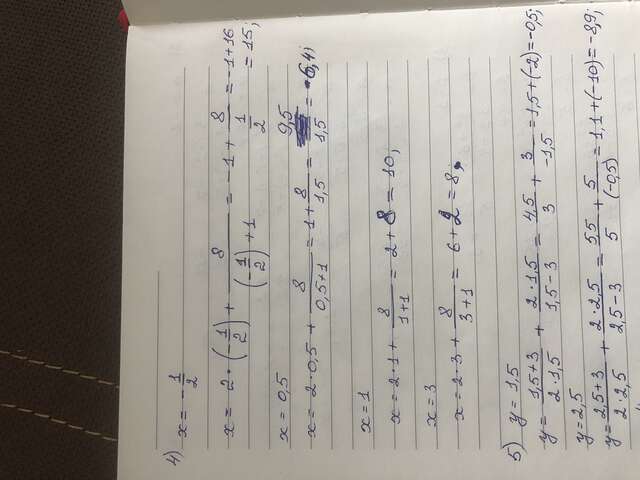 4) x = -1/2
x = 2 · (-1/2) + 8/((-1/2) + 1) = -1 + 8/(1/2) = -1 + 16
= 15;
x = 0,5
x = 2 · 0,5 + 8/(0,5 + 1) = (1 + 8)/1,5 = 9,5/1,5 = 6,4;
x = 1
x = 2 · 1 + 8/(1 + 1) = 2 + 8 = 10;
x = 3
x = 2 · 3 + 8/(3 + 1) = 6 + 2 = 8;
5) y = 1,5
y = (1,5 + 3)/(2 · 1,5) + (2 · 1,5)/(1,5 - 3) = 4,5/3 + 3/-1,5 = 1,5 + (-2) = -0,5;
y = 2,5
y = (2,5 + 3)/(2 · 2,5) + (2 · 2,5)/(2,5 - 3) = 5,5/5 + 5/(-0,5) = 1,1 + (-10) = -8,9;